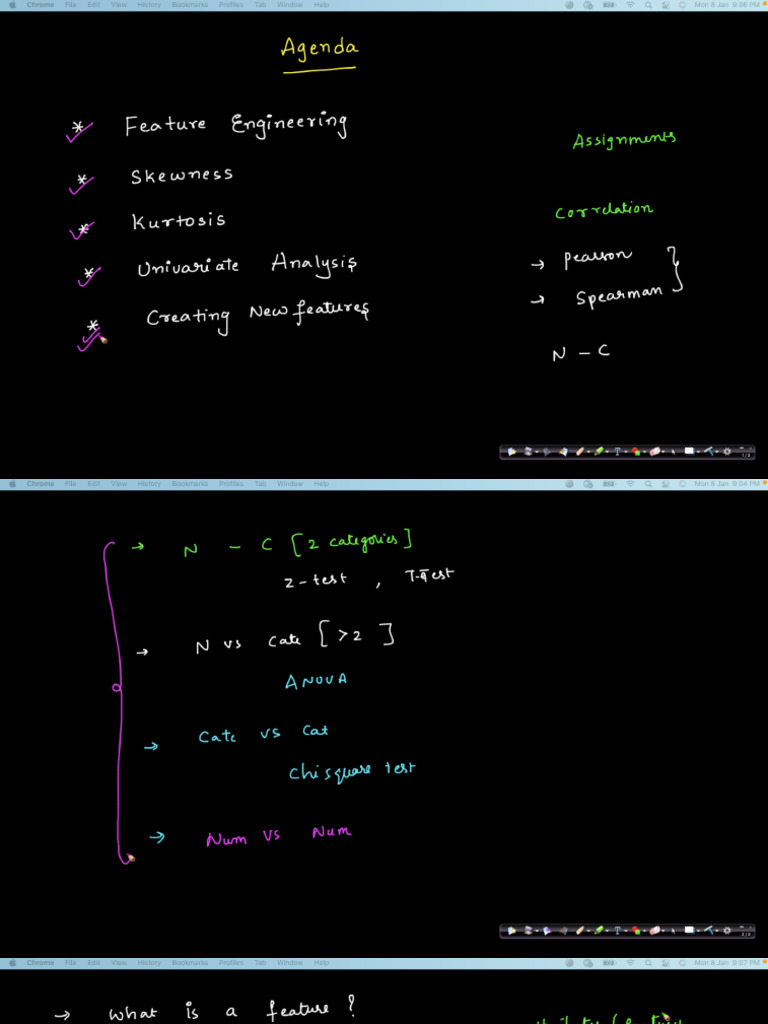 Chrome File Edit View History Bookmarks Profiles Tab Window Help Mon 8 Jan 9:06 PM
Agenda
* Feature Engineering
* Skewness
* Kurtosis
* Univariate Analysis
* Creating New features
Assignments
Correlation
→ Pearson
→ Spearman
N - C
1/2
Chrome File Edit View History Bookmarks Profiles Tab Window Help Mon 8 Jan 9:04 PM
→ N - C [2 categories]
Z-test , T-Test
→ N vs Cate [>2]
ANOVA
→ Cate vs Cat
Chisquare test
→ Num vs Num
2/2
Chrome File Edit View History Bookmarks Profiles Tab Window Help Mon 8 Jan 9:07 PM
→ What is a feature?